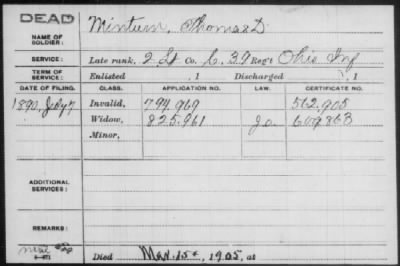 DEAD
NAME OF SOLDIER: Minturn, Thomas D.
SERVICE: Late rank, 2 Lt Co. C. 39 Reg't Ohio Inf
TERM OF SERVICE: Enlisted , 1 Discharged , 1
DATE OF FILING. CLASS. APPLICATION NO. LAW. CERTIFICATE NO.
1890, July 7 Invalid, 794,969 562,905
Widow, 825,961 609,863
Minor,
ADDITIONAL SERVICES:
REMARKS:
Died Mar. 15, 1905, at